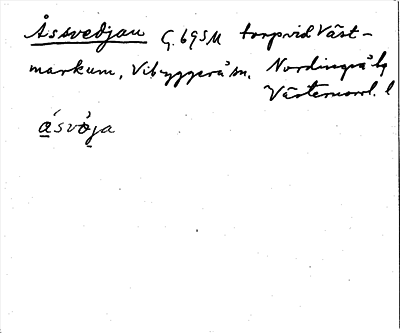 Åssvedjan G. 695M torp vid Väst-
markum, Vibyggerå sn. Nordingrå tg
Västernorrl. l
åsvòja